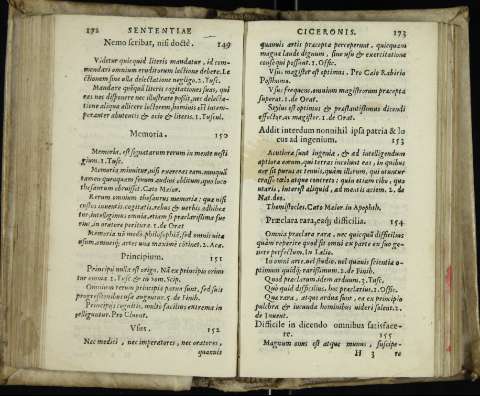 172 SENTENTIAE
Nemo scribat, nisi doctè. 149
Videtur quicquid literis mandatur, id com-
mendari omnium eruditorum lectione debere. Le
ctionem sine ulla delectatione negligo. 2. Tusc.
Mandare quenquam literis cogitationes suas, qui
eas nec disponere nec illustrare possit, nec delecta-
tione aliqua allicere lectorem, hominis est intem-
peranter abutentis & ocio & literis. 1. Tuscul.
Memoria. 150
Memoria, est signatarum rerum in mente vesti
gium. 1. Tusc.
Memoria minuitur, nisi exerceas eam. nec
tamen quenquam senum audivi oblitum, quo loco
thesaurum obruisset. Cato Maior.
Rerum omnium thesaurus memoria: quæ nisi
custos inventis cogitatisque rebus & verbis adhibea
tur, intelligimus omnia, etiam si præclarissima fue
rint, in oratore peritura. 1. de Orat.
Memoria
Principium. 151
Principii nulla est origo. Nã ex principio oriun
tur omnia. 1. Tusc. & in som. Scip.
Omnium rerum principia parva sunt, sed suis
progressionibus usa augentur. 5. de Finib.
Principiis cognitis, multo facilius extrema in
telliguntur. Pro Cluent.
Vsus. 152
Nec medici, nec imperatores, nec oratores,
quamuis
CICERONIS. 173
quamvis artis præcepta perceperint, quicquam
magna laude dignum, sine usu & exercitatione
consequi possunt. 1. Offic.
Vsus magister est optimus. Pro Caio Rabirio
Posthumo.
Vsus frequens, omnium magistrorum præcepta
superat. 1. de Orat.
Stylus est optimus & præstantissimus dicendi
effector, ac magister. 1. de Orat.
Addit interdum nonnihil ipsa patria & lo
cus ad ingenium. 153
Acutiora sunt ingenia, & ad intelligendum
aptiora eorum, qui terras incolunt eas, in quibus
aër sit purus ac tenuis, quàm illorum, qui utuntur
crasso cælo atque concreto: quin etiam cibo, quo
utaris, interest aliquid, ad mentis aciem. 2. de
Nat. deo.
Themistocles. Cato Maior in Apophth.
Præclara rara, eaque difficilia. 154
Omnia præclara rara, nec quicquã difficilius
quàm reperire quod sit omni ex parte in suo ge-
nere perfectum. In Lælio.
In omni arte, vel studio, vel quauis scientia o-
ptimum quidque rarissimum. 2. de Finib.
Quod præclarum, idem arduum. 3. Tusc.
Quo quid difficilius, hoc præclarius. 1. Offic.
Quæ rara, atque ardua sunt, ea ex principio
pulchra & iucunda hominibus videri solent. 2.
de Invent.
Difficile in dicendo omnibus satisface-
re. 155
Magnum onus est atque munus, suscipe-
H 3 re